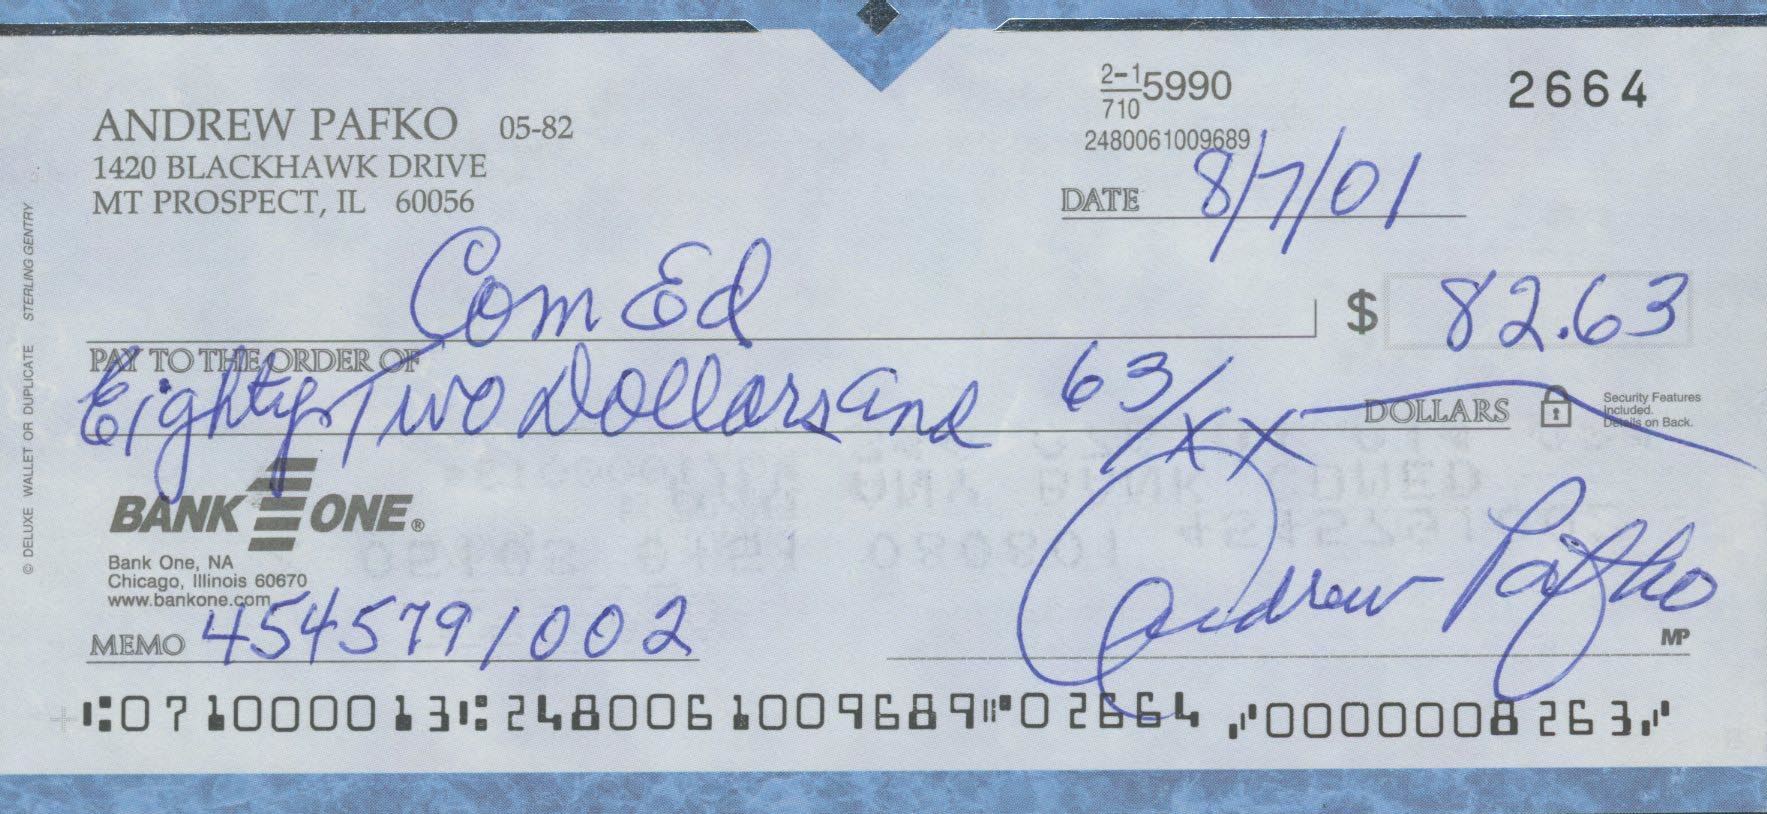 2-1
710
5990
2664
ANDREW PAFKO 05-82
1420 BLACKHAWK DRIVE
MT PROSPECT, IL 60056
2480061009689
DATE 8/7/01
Com Ed
$ 82.63
PAY TO THE ORDER OF
Eighty Two Dollars and 63/xx
DOLLARS
Security Features
Included.
Details on Back.
BANK ONE®
Bank One, NA
Chicago, Illinois 60670
www.bankone.com
MEMO 4545791002
Andrew Pafko
MP
⑆071000013⑆ 2480061009689⑈02664 ⑇0000008263⑇
© DELUXE WALLET OR DUPLICATE STERLING GENTRY